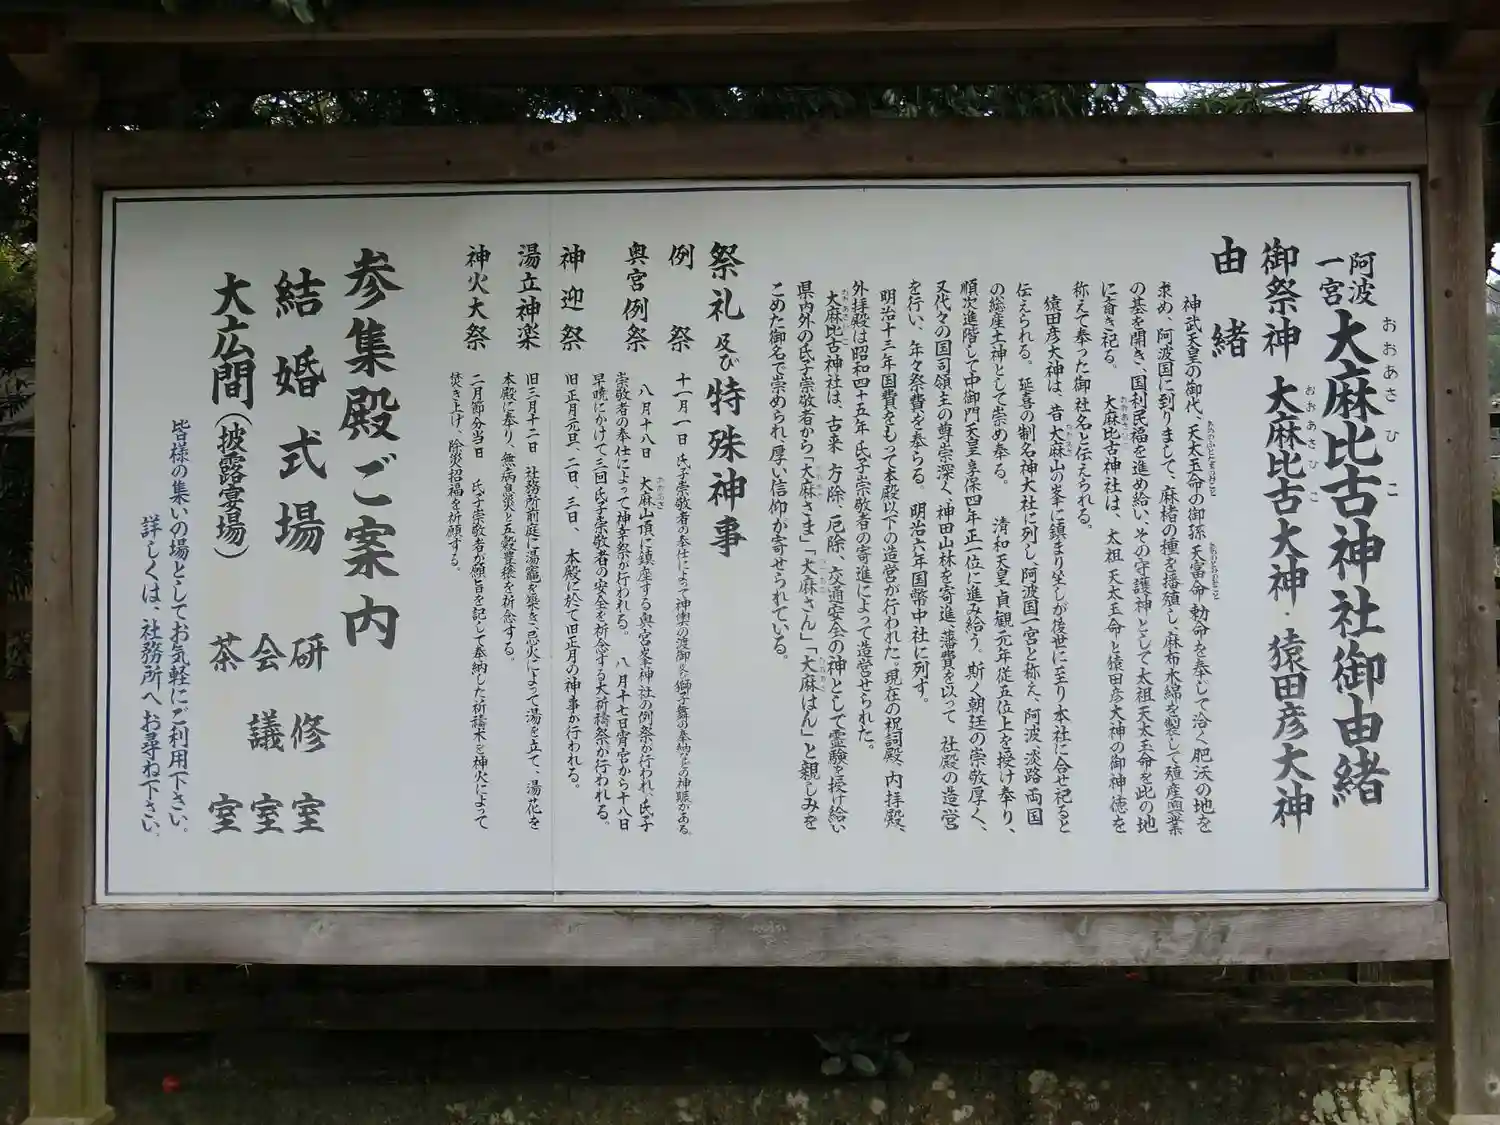 阿波一宮 大麻比古神社御由緒
おおあさひこ
御祭神 大麻比古大神・猿田彦大神
おおあさひこ
由緒
神武天皇の御代、天太玉命の御孫 天富命 勅命を奉じて洽く肥沃の地を
求め、阿波国に到りまして、麻楮の種を播殖し、麻布木綿を製して殖産興業
の基を開き、国利民福を進め給い、その守護神として太祖天太玉命を此の地
に斎き祀る。 大麻比古神社は、太祖 天太玉命と猿田彦大神の御神徳を
称えて奉った御社名と伝えられる。
猿田彦大神は、昔大麻山の峯に鎮まり坐しが後世に至り本社に合せ祀ると
伝えられる。 延喜の制名神大社に列し、阿波国一宮と称え、阿波、淡路両国
の総産土神として崇め奉る。 清和天皇貞観元年従五位上を授け奉り、
順次進階して中御門天皇享保四年正一位に進み給う。斯く朝廷の崇敬厚く、
又代々の国司領主の尊崇深く、神田山林を寄進、藩費を以って、社殿の造営
を行い、年々祭費を奉らる。明治六年国幣中社に列す。
明治十三年国費をもって本殿以下の造営が行われた。現在の祝詞殿、内拝殿、
外拝殿は昭和四十五年氏子崇敬者の寄進によって造営せられた。
大麻比古神社は、古来 方除、厄除、交通安全の神として霊験を授け給い
県内外の氏子崇敬者から「大麻さま」「大麻さん」「大麻はん」と親しみを
こめた御名で崇められ厚い信仰が寄せられている。
祭礼及び特殊神事
例祭 十一月一日 氏子崇敬者の奉仕によって神輿の渡御、獅子舞の奉納などの神賑がある。
奥宮例祭 八月十八日 大麻山頂に鎮座する奥宮峯神社の例祭が行われ、氏子
崇敬者の奉仕によって神幸祭が行われる。 八月十七日宵宮から十八日
早暁にかけて三回氏子崇敬者の安全を祈念する大祈祷祭が行われる。
神迎祭 旧正月元旦、二日、三日、 本殿に於て旧正月の神事が行われる。
湯立神楽 旧三月十二日 社務所前庭に湯竈を築き、忌火によって湯を立て、湯花を
本殿に奉り、無病息災と五穀豊穣を祈念する。
神火大祭 二月節分当日 氏子崇敬者が願旨を記して奉納した祈祷木を神火によって
焚き上げ、除災招福を祈願する。
参集殿ご案内
結婚式場 研修室
会議室
大広間(披露宴場) 茶室
皆様の集いの場としてお気軽にご利用下さい。
詳しくは、社務所へお尋ね下さい。